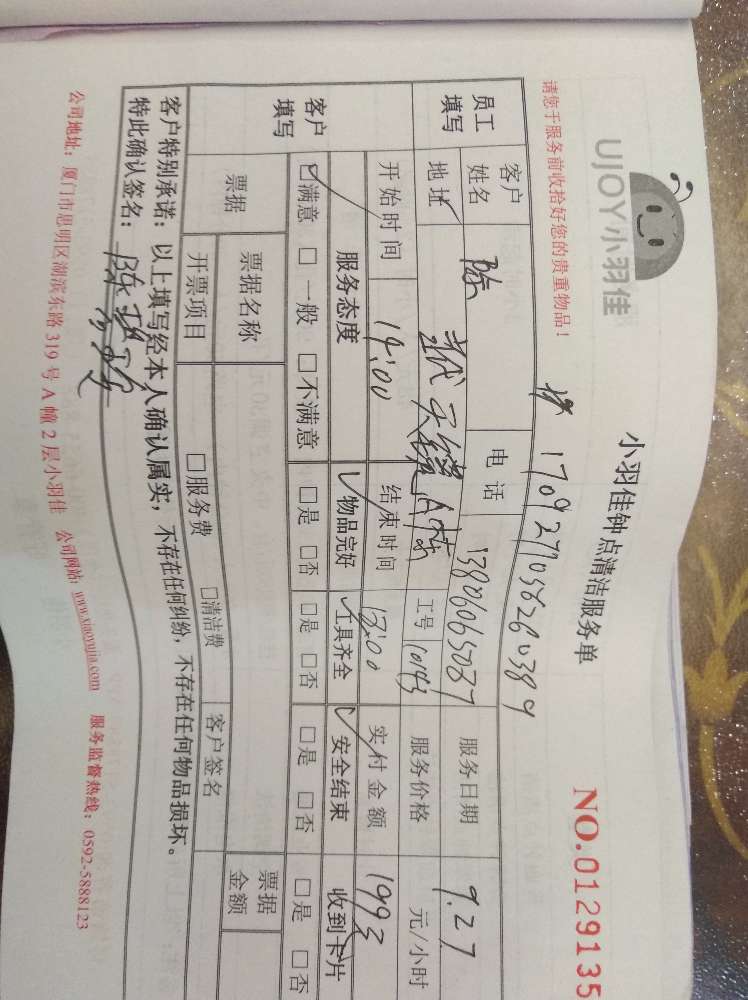 UJOY小羽佳
小羽佳钟点清洁服务单
NO.0129135
请您于服务前收拾好您的贵重物品!
员工填写
客户姓名
陈
电话
13806065037
服务日期
9.27
地址
A幢
工号
服务价格
元/小时
开始时间
14:00
结束时间
实付金额
客户填写
服务态度
物品完好
工具齐全
安全结束
收到卡片
☑满意 □一般 □不满意
□是 □否
□是 □否
□是 □否
□是 □否
票据
票据名称
票据金额
开票项目
□服务费 □清洁费
客户签名
客户特别承诺:以上填写经本人确认属实,不存在任何纠纷,不存在任何物品损坏。
特此确认签名:
公司地址:厦门市思明区湖滨东路 319 号 A 幢 2 层小羽佳 公司网站:www.xiaoyujia.com 服务监督热线:0592-5888123